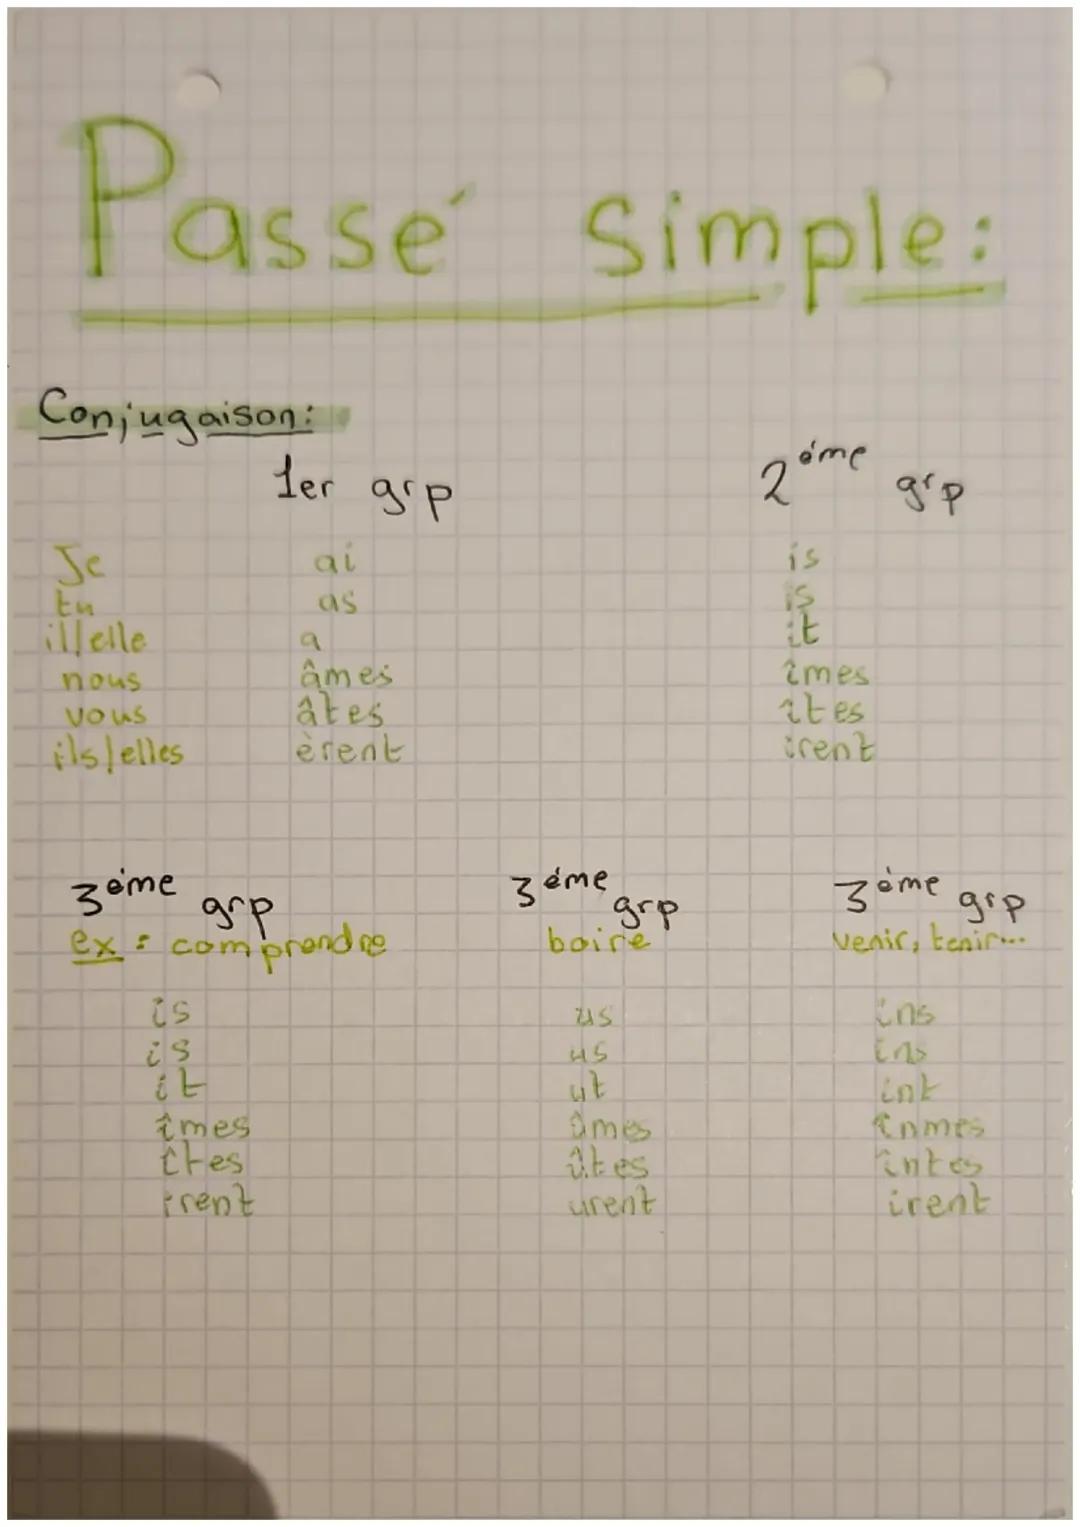 Passé simple:
Conjugaison:
1er grp
2ème grp
Je ai is
tu as is
il/elle a it
nous âmes îmes
vous âtes îtes
ils/elles èrent irent
3ème grp 3ème grp 3ème grp
ex : comprendre boire venir, tenir...
is us ins
is us ins
it ut int
îmes ûmes înmes
îtes ûtes întes
irent urent irent